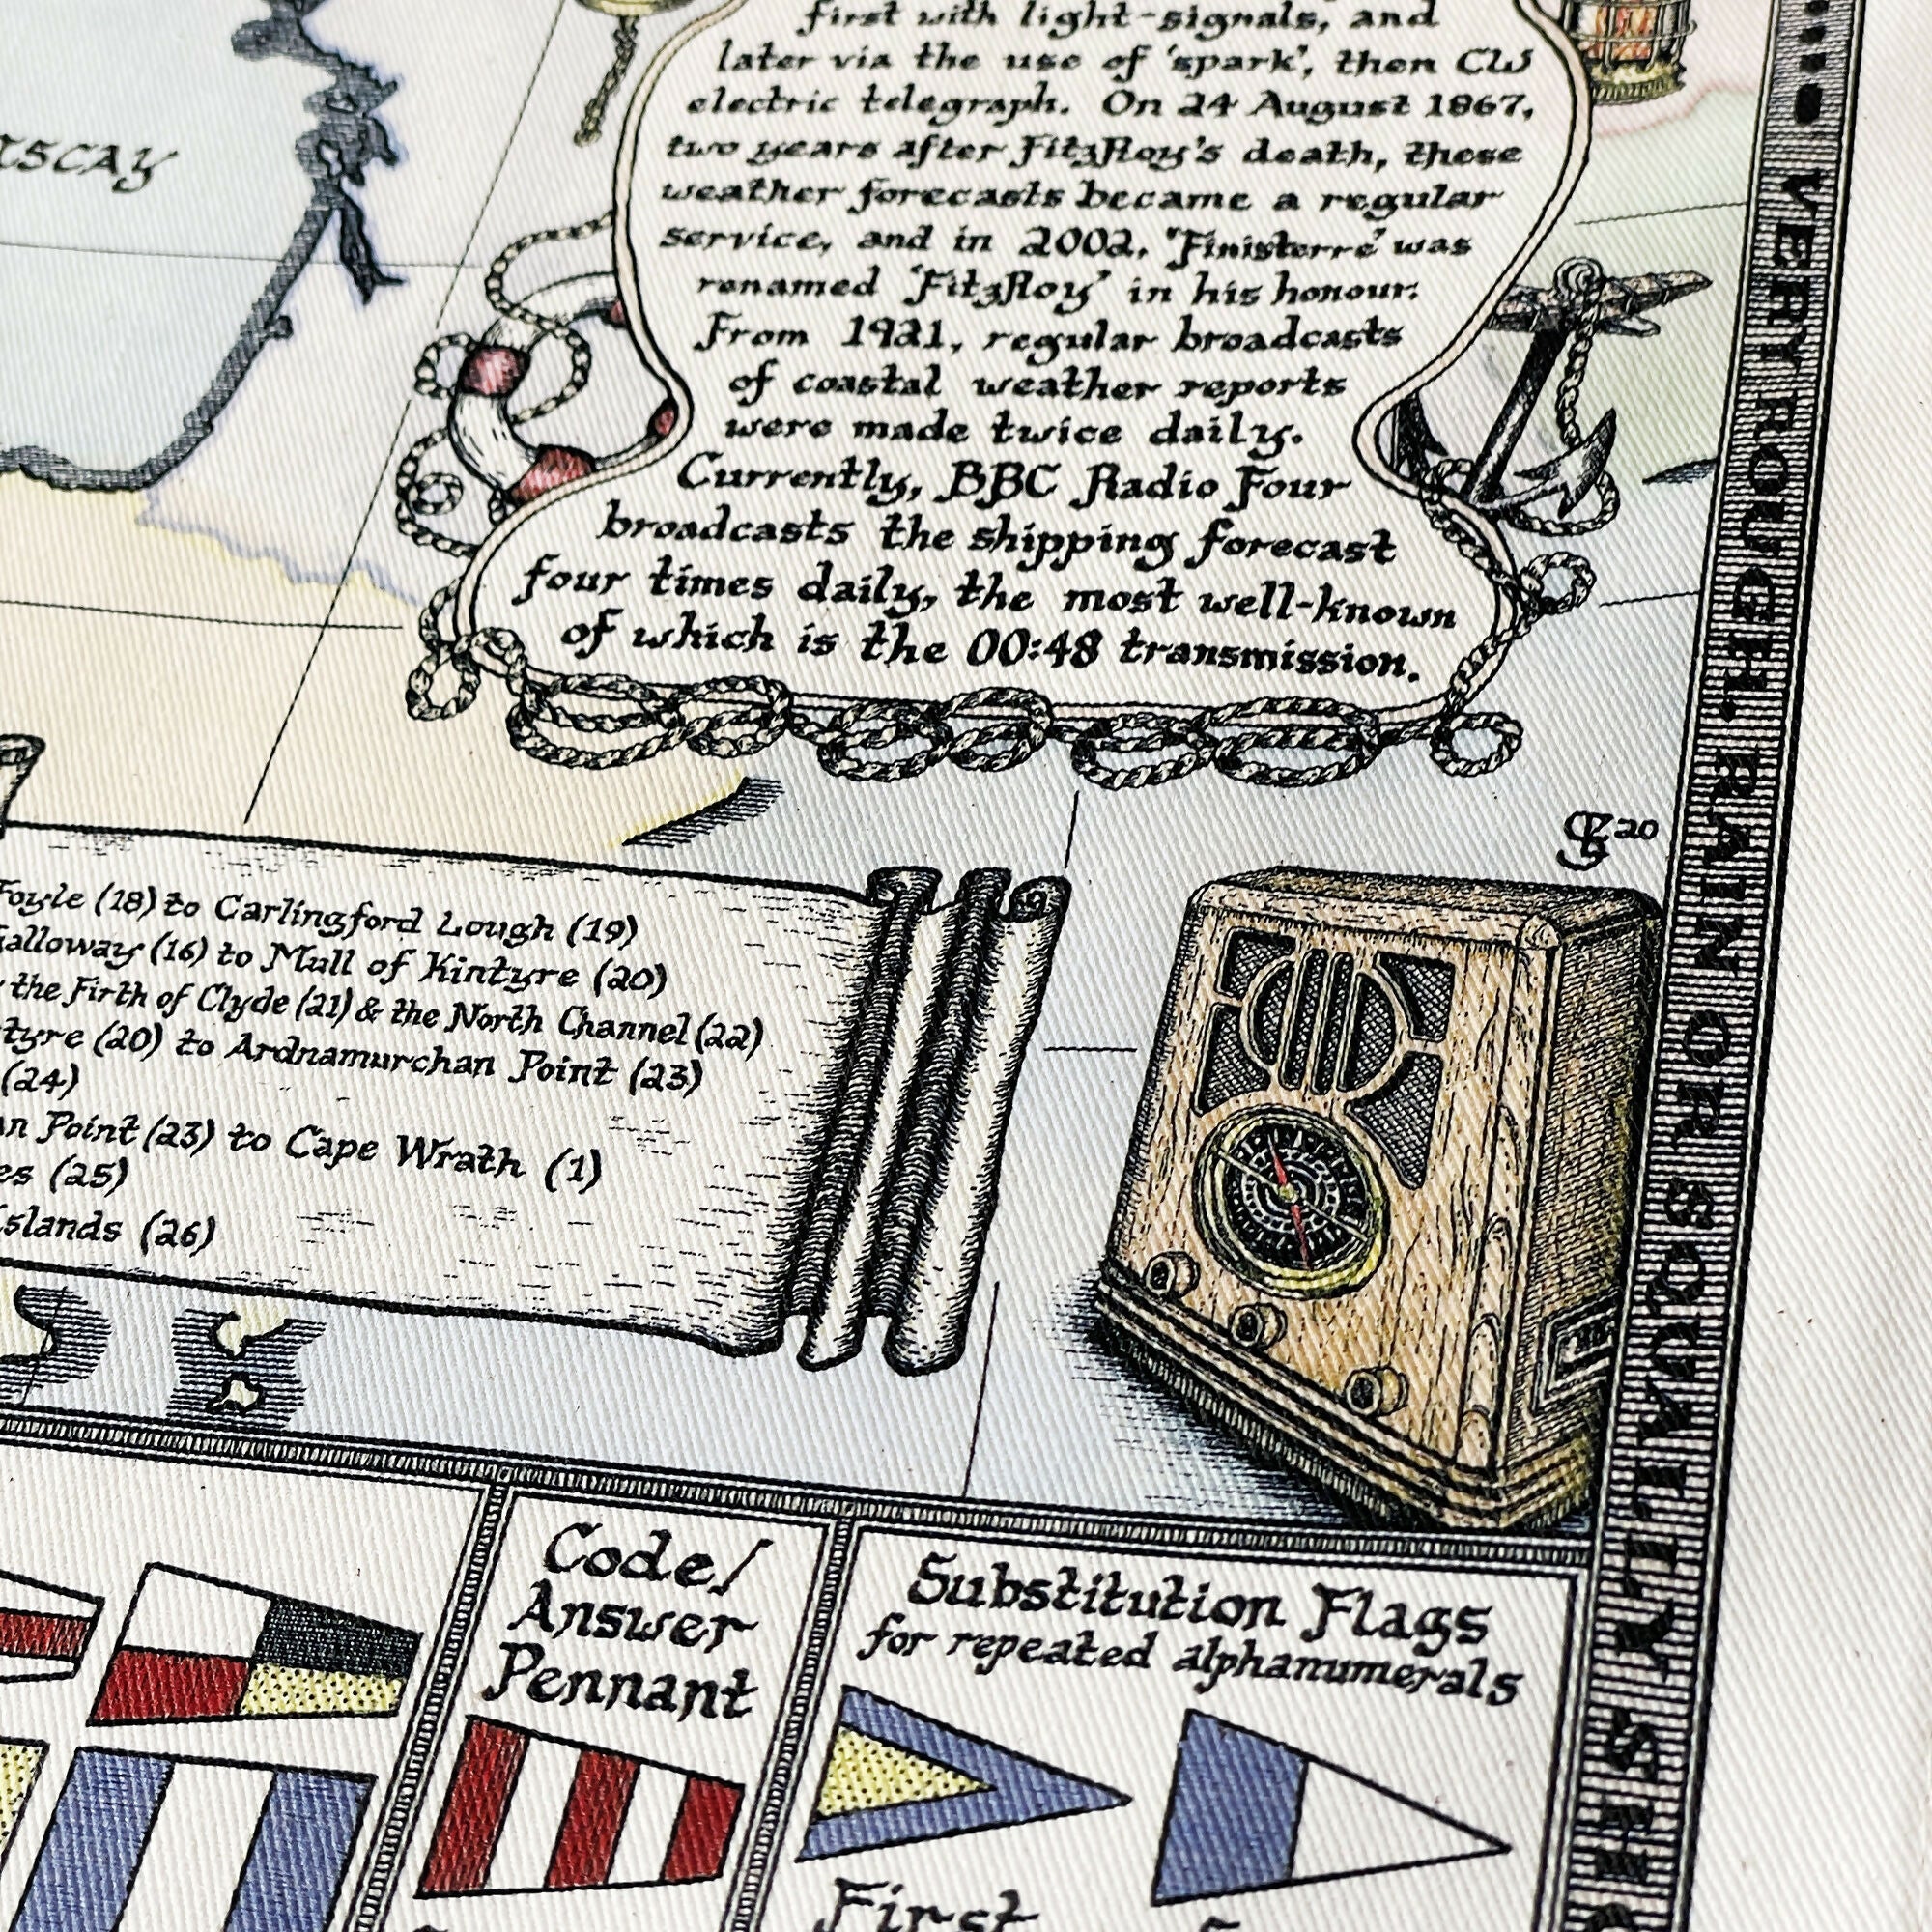 first with light-signals, and
later via the use of 'spark', then CW
electric telegraph. On 24 August 1867,
two years after FitzRoy's death, these
weather forecasts became a regular
service, and in 2002, 'Finisterre' was
renamed 'FitzRoy' in his honour.
From 1921, regular broadcasts
of coastal weather reports
were made twice daily.
Currently, BBC Radio Four
broadcasts the shipping forecast
four times daily, the most well-known
of which is the 00:48 transmission.
20
Foyle (18) to Carlingford Lough (19)
Galloway (16) to Mull of Kintyre (20)
the Firth of Clyde (21) & the North Channel (22)
tyre (20) to Ardnamurchan Point (23)
(24)
n Point (23) to Cape Wrath (1)
es (25)
Islands (26)
Code/
Answer
Pennant
Substitution Flags
for repeated alphanumerals
First
VERY ROUGH. RAIN OR SQUALLY S